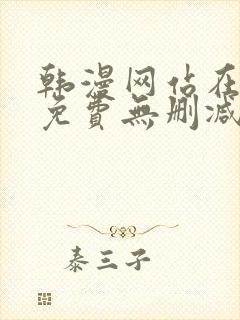 韩漫网站在
免費無删减
泰三子